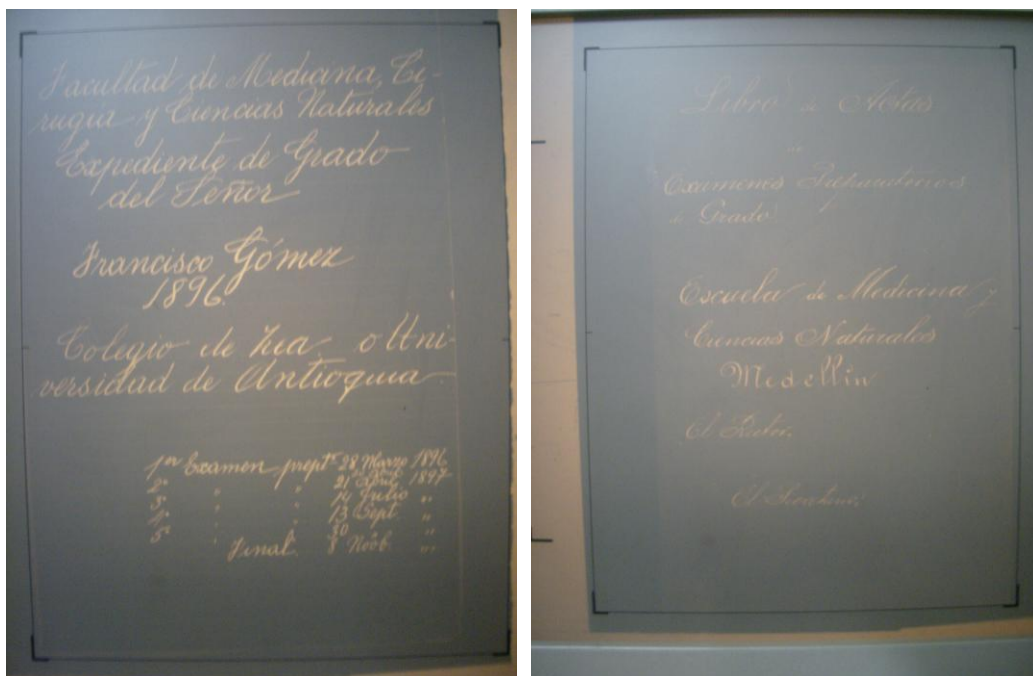 Facultad de Medicina, Ci-
rugía y Ciencias Naturales
Expediente de Grado
del Señor
Francisco Gómez
1896.
Colegio de Zea o Uni-
versidad de Antioquia
1er Examen prept. 28 Marzo 1896
2º " " 21 April 1897
3º " " 14 Julio "
4º " " 13 Sept. "
5º " " 30 "
Final. 8 Novb. "
Libro de Actas
de
Examenes Preparatorios
de Grado.
Escuela de Medicina y
Ciencias Naturales
Medellín
El Rector.
El Secretario.